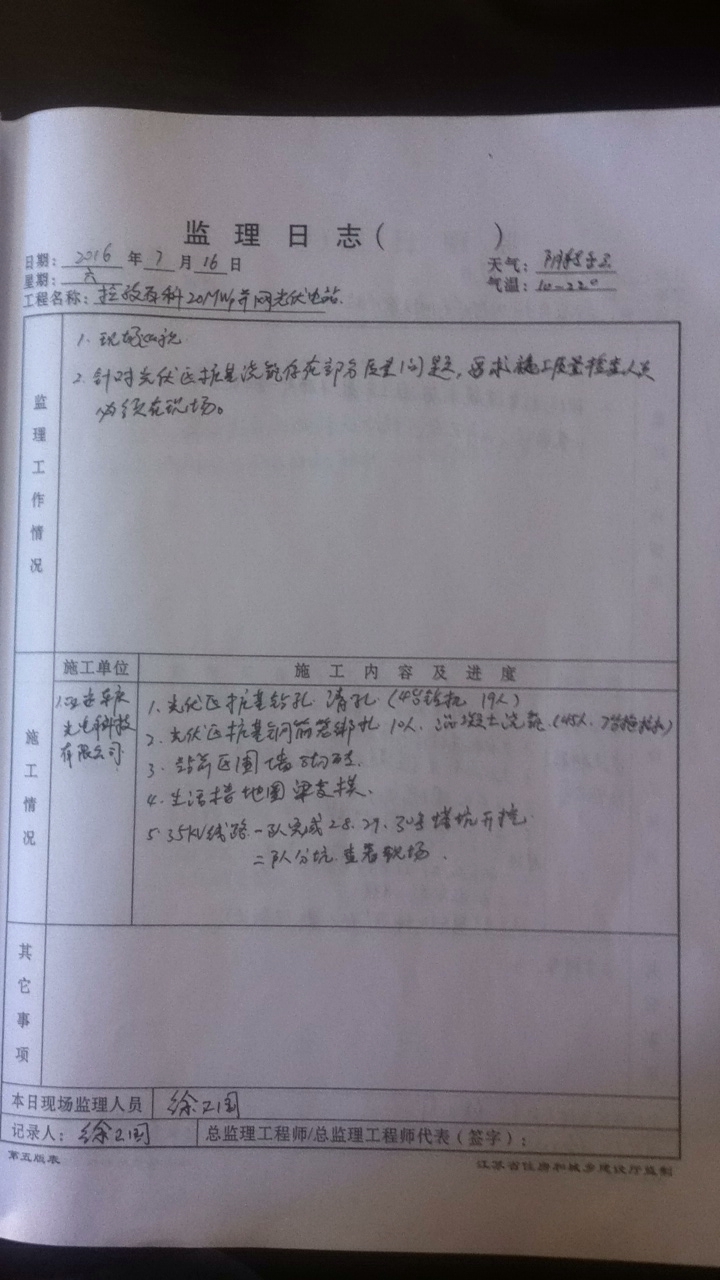 监理日志(          )
日期：2016年7月16日
星期：六
天气：阴
气温：10-22°
工程名称：拉孜 科20MW并网光伏电站.
监理工作情况
1. 现场巡视
2. 针对光伏区桩基浇筑存在部分质量问题，要求施工质量检查人员
必须在现场。
施工情况
施工单位
施工内容及进度
光电科技
有限公司
1. 光伏区桩基钻孔 清孔（4台钻机 19人）
2. 光伏区桩基钢筋笼绑扎 10人. 混凝土浇筑（45人.
3. 站前区围墙
4. 生活楼地圈梁支模.
5. 35KV线路一队完成28.29.30号塔坑开挖.
二队分坑.查看现场.
其它事项
本日现场监理人员 徐卫国
记录人：徐卫国 总监理工程师/总监理工程师代表（签字）：
第五版表 江苏省住房和城乡建设厅监制